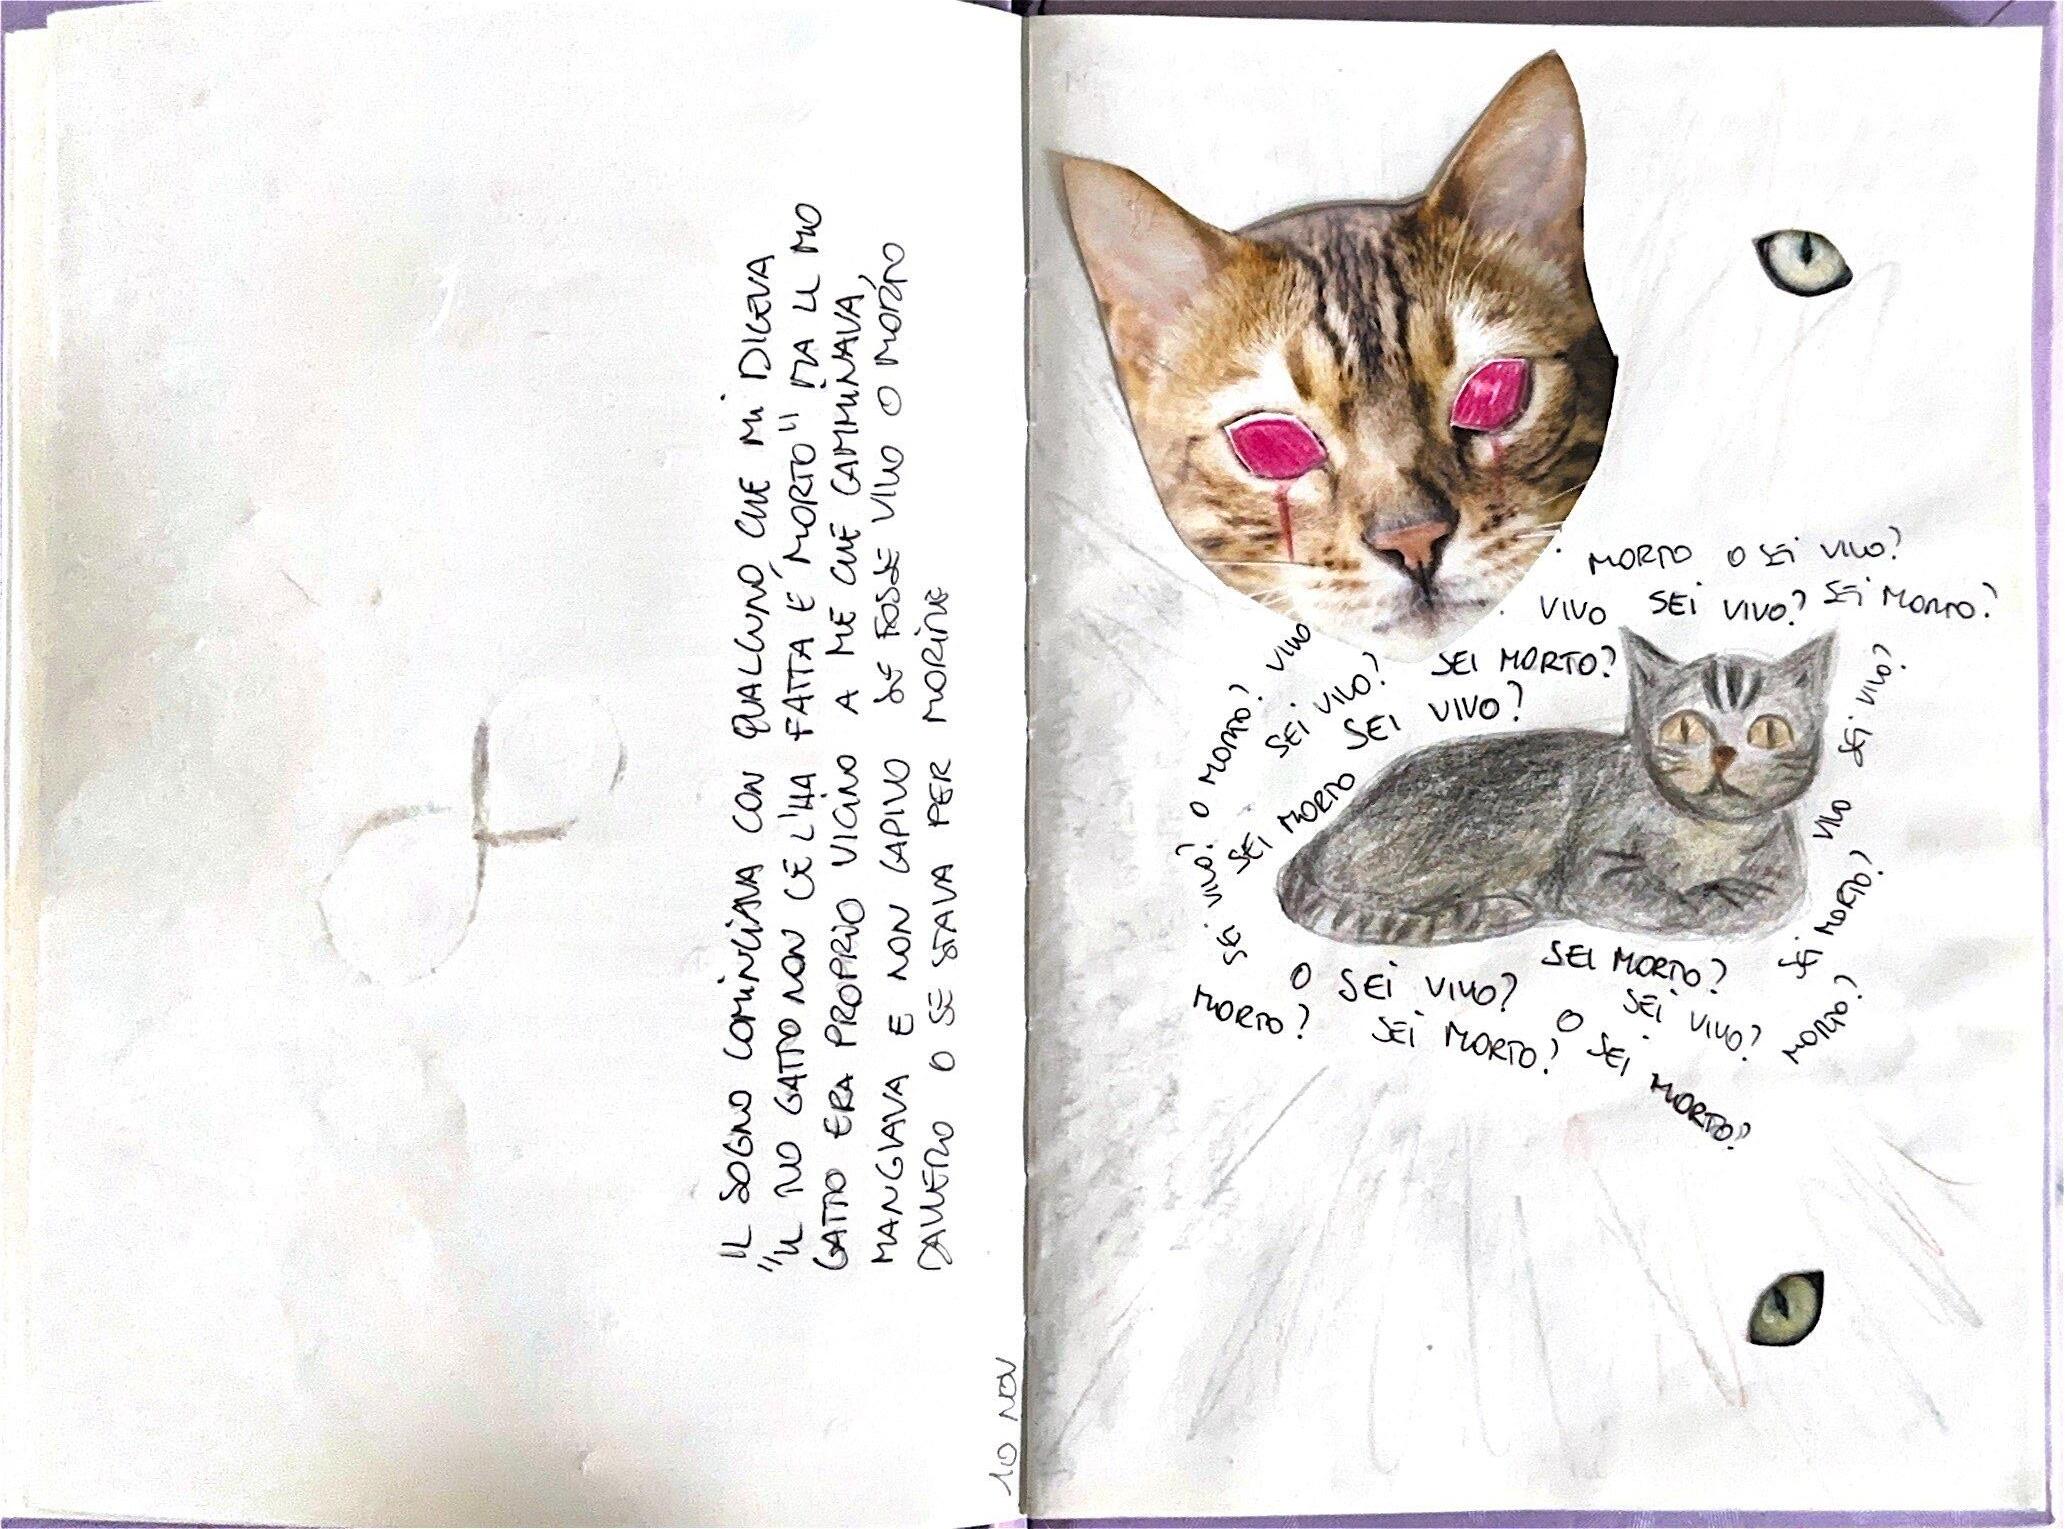 IL SOGNO COMINCIAVA CON QUALCUNO CHE MI DICEVA
"IL TUO GATTO NON CE L'HA FATTA E' MORTO" MA IL MIO
GATTO ERA PROPRIO VICINO A ME CHE CAMMINAVA,
MANGIAVA E NON CAPIVO SE FOSSE VIVO O MORTO
DAVVERO O SE STAVA PER MORIRE
10 NOV
MORTO O SEI VIVO?
VIVO SEI VIVO? SEI MORTO?
SEI MORTO?
SEI VIVO?
SEI VIVO? O MORTO? VIVO
SEI MORTO SEI VIVO?
SEI VIVO?
VIVO
SEI MORTO?
MORTO?
O SEI VIVO?
SEI MORTO?
MORTO?
SEI MORTO?
SEI VIVO?
O SEI MORTO?